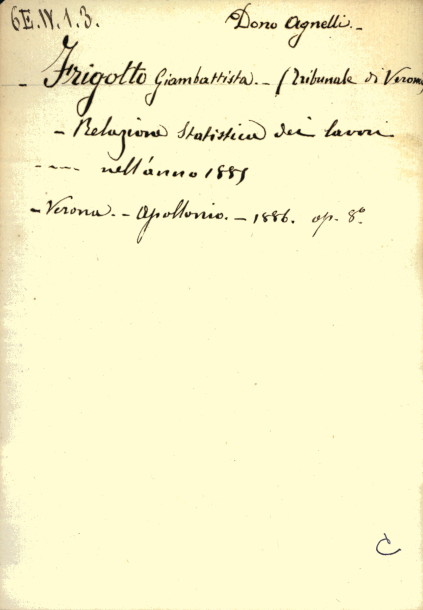 6E.IV.1.3. Dono Agnelli.-
- Frigotto Giambattista. - (Tribunale di Verona)
- Relazione Statistica dei lavori
---- nell'anno 1885
- Verona. - Apollonio. - 1886. op. 8°
C